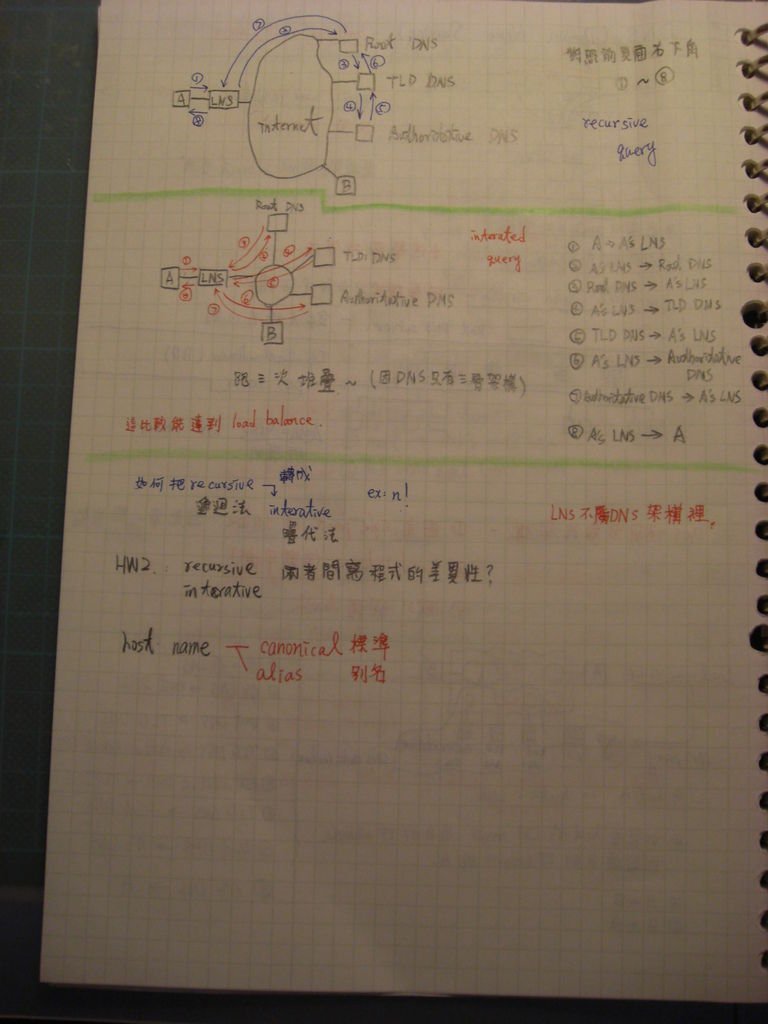 Root DNS
TLD DNS
Authoritative DNS
A
LNS
internet
B
① ~ ⑧
recursive
query
Root DNS
TLD DNS
Authoritative DNS
A
LNS
B
interated
query
跑三次堆疊~(因DNS只有三層架構)
這比較能達到 load balance.
① A → A's LNS
② A's LNS → Root DNS
③ Root DNS → A's LNS
④ A's LNS → TLD DNS
⑤ TLD DNS → A's LNS
⑥ A's LNS → Authoritative
DNS
⑦ Authoritative DNS → A's LNS
⑧ A's LNS → A
如何把 recursive 轉成
interative
ex: n!
LNS不屬DNS架構裡。
HW2. : recursive
interative
兩者間寫程式的差異性?
host name
canonical 標準
alias 別名